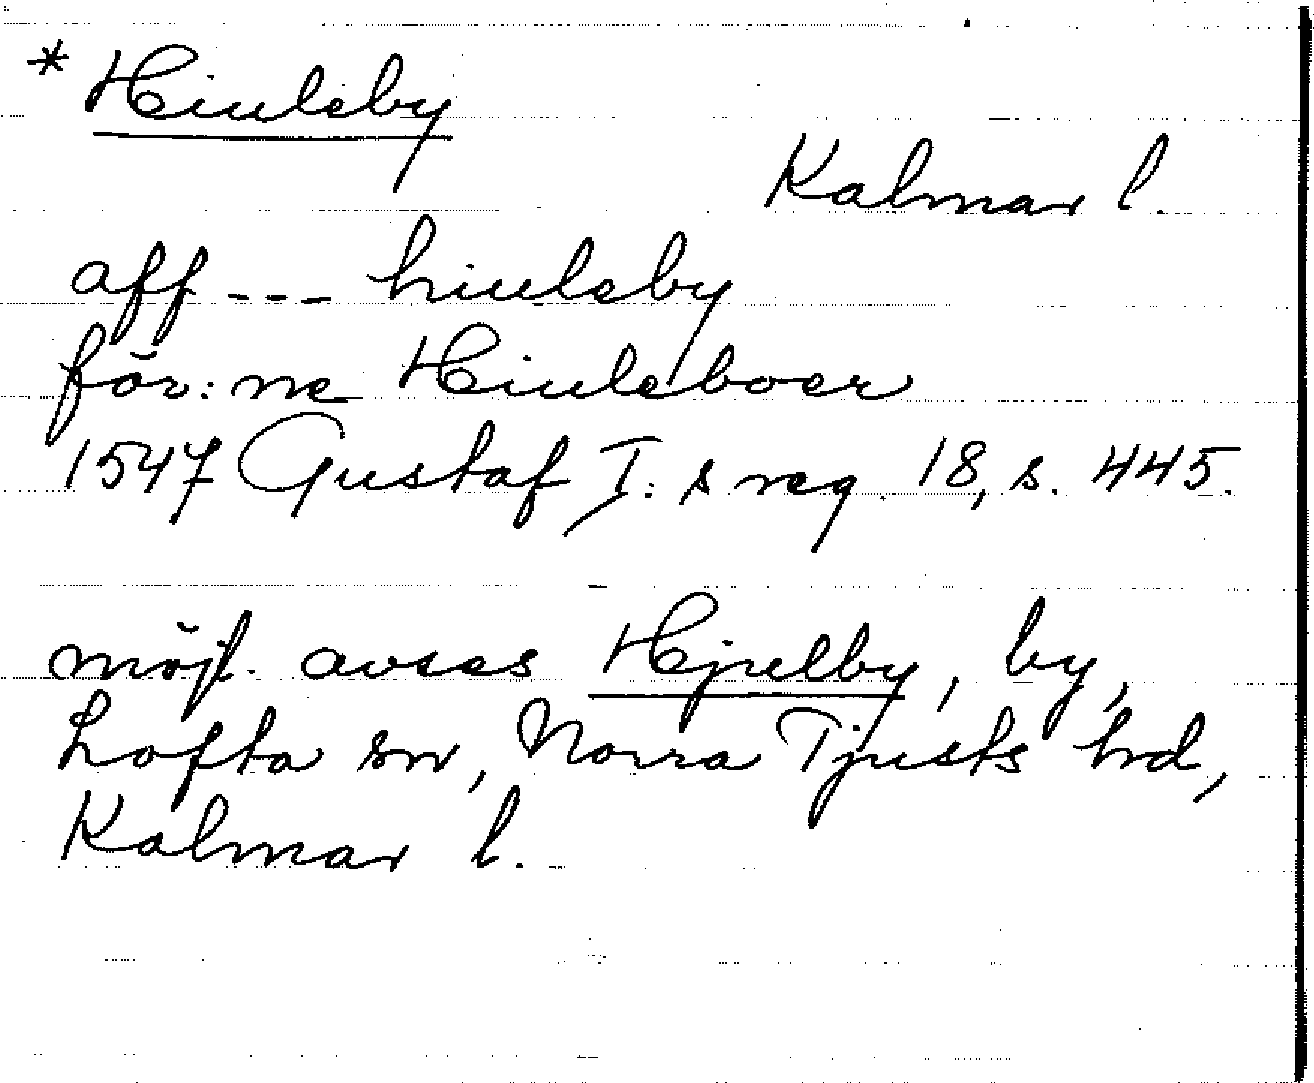 * Hiuleby
Kalmar l.
aff --- hiuleby
för: ne Hiuleboer
1547 Gustaf I: s reg. 18, s. 445.
möjl. avses Hjulby, by,
Lofta sn, Norra Tjusts hd,
Kalmar l.